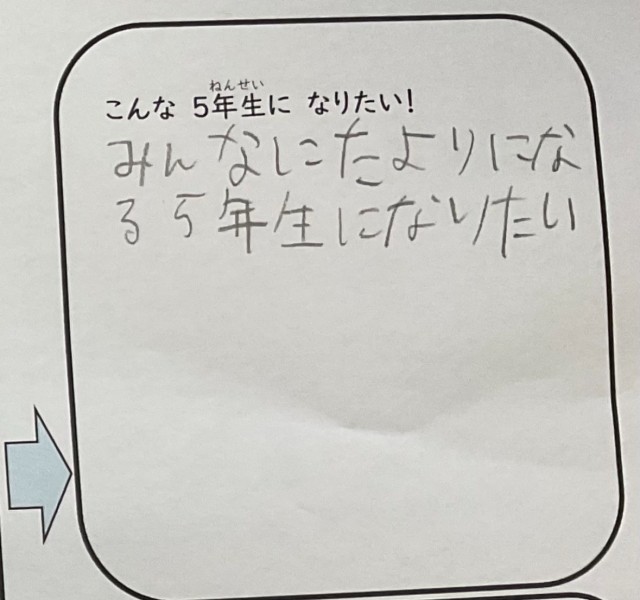 ねんせい
こんな 5年生に なりたい!
みんなにたよりにな
る5年生になりたい